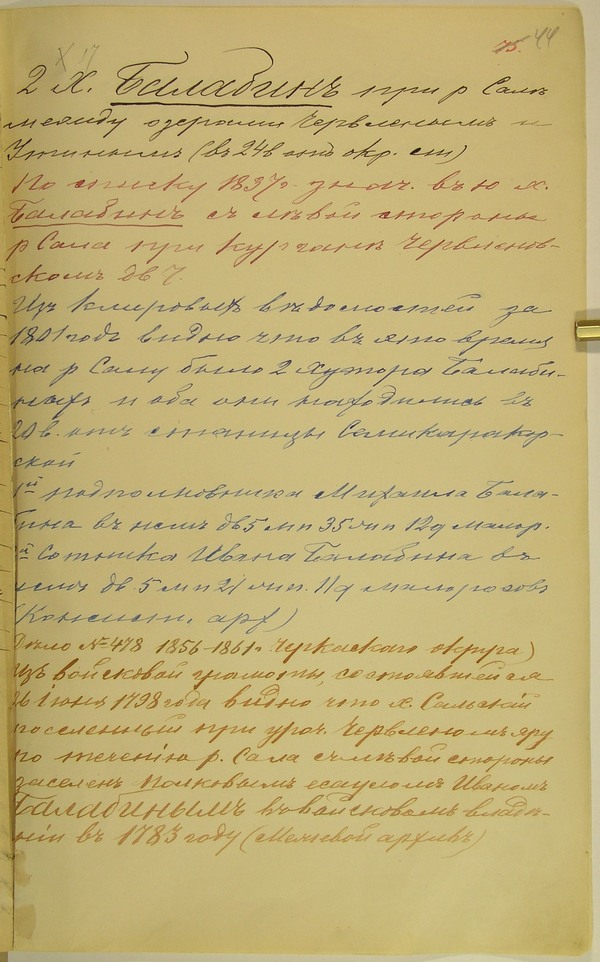 75. 44
X 17
2 Х. Балабинъ при р Салѣ
между озерами Червленымъ и
Утинымъ (въ 24в отъ окр. ст)
По списку 1837г. знач. въ ю х.
Балабинъ съ лѣвой стороны
р Сала при курганѣ Червленов-
скомъ дв 7.
Изъ клировыхъ вѣдомостей за
1801 годъ видно что въ это время
на р Салу было 2 хутора Балаби-
ныхъ и оба они находились въ
20 в. отъ станицы Семикаракор-
ской
1й подполковника Михаила Бала-
бина въ немъ дв 5 м п 35 ж п 12 д малор.
й Сотника Ивана Балабина въ
немъ дв. 5 м п 21 ж п. 11 д малоросовъ
(Консист. арх)
Дѣло № 478 1856-1861г. Черкаскаго округа)
Изъ войсковой грамоты, состоявшейся
26 Іюня 1798 года видно что х. Сальскій
поселенный при уроч. Червленомъ яру
по теченію р. Сала съ лѣвой стороны
заселенъ полковымъ есауломъ Иваномъ
Балабинымъ въ войсковомъ владѣ-
ніи въ 1783 году (Межевой архивъ)